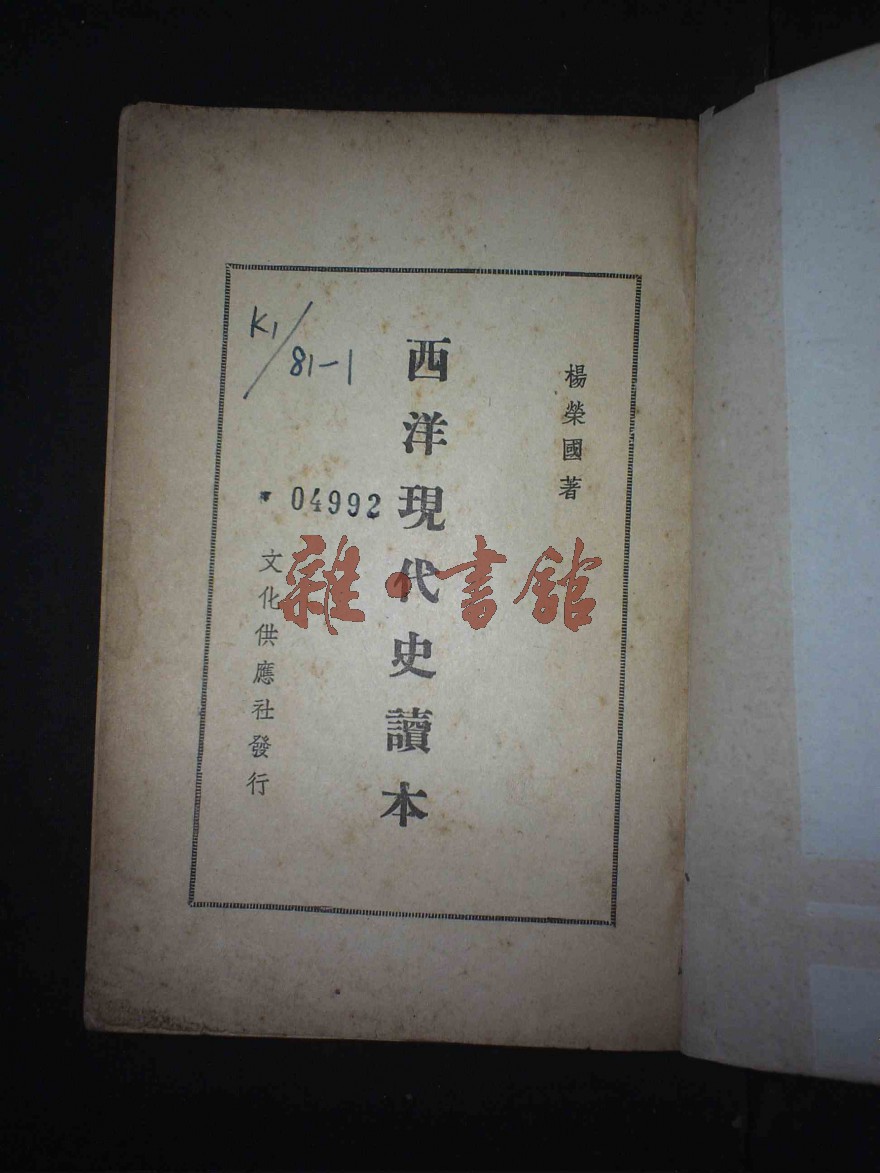 楊榮國著
西洋現代史讀本
文化供應社發行
K1/81-1
04992
雜·書館